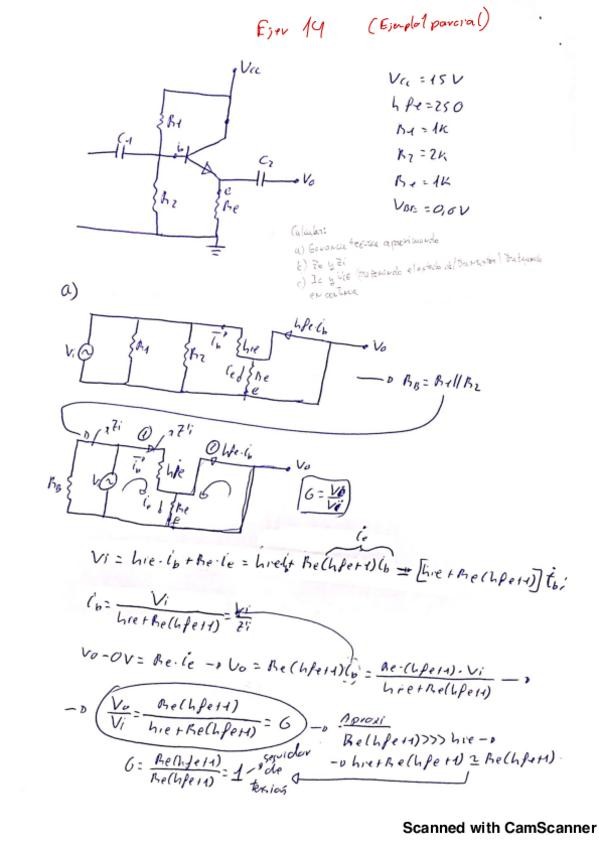 Ejer 14 (Ejemplo 1 parcial)
Vcc
R1
C1
ib
C2
Vo
e
R2
Re
Vcc = 15 V
hfe = 250
R1 = 1K
R2 = 2K
Re = 1K
VBE = 0,6V
Calcular:
a) Ganancia tensión aproximando
b) Zo y Zi
c) Ic y VCE
en continua
a)
Vi
R1
R2
ib
hie
hfe ib
Vo
ie
Re
e
→ RB = R1//R2
Zi
①
Z'i
② hfe·ib
Vo
RB
Vi
ib
hie
ie
Re
e
G = Vo/Vi
ie
Vi = hie·ib + Re·ie = hie ib + Re(hfe+1)ib = [hie + Re(hfe+1)] ib;
ib = Vi/(hie + Re(hfe+1)) = Vi/Z'i
Vo - 0V = Re·ie → Vo = Re(hfe+1)ib = Re·(hfe+1)·Vi/(hie + Re(hfe+1)) →
→ Vo/Vi = Re(hfe+1)/(hie + Re(hfe+1)) = G → Aproxi
Re(hfe+1) >>> hie →
→ hie + Re(hfe+1) ≃ Re(hfe+1).
G = Re(hfe+1)/Re(hfe+1) = 1 → seguidor de tensión
Scanned with CamScanner